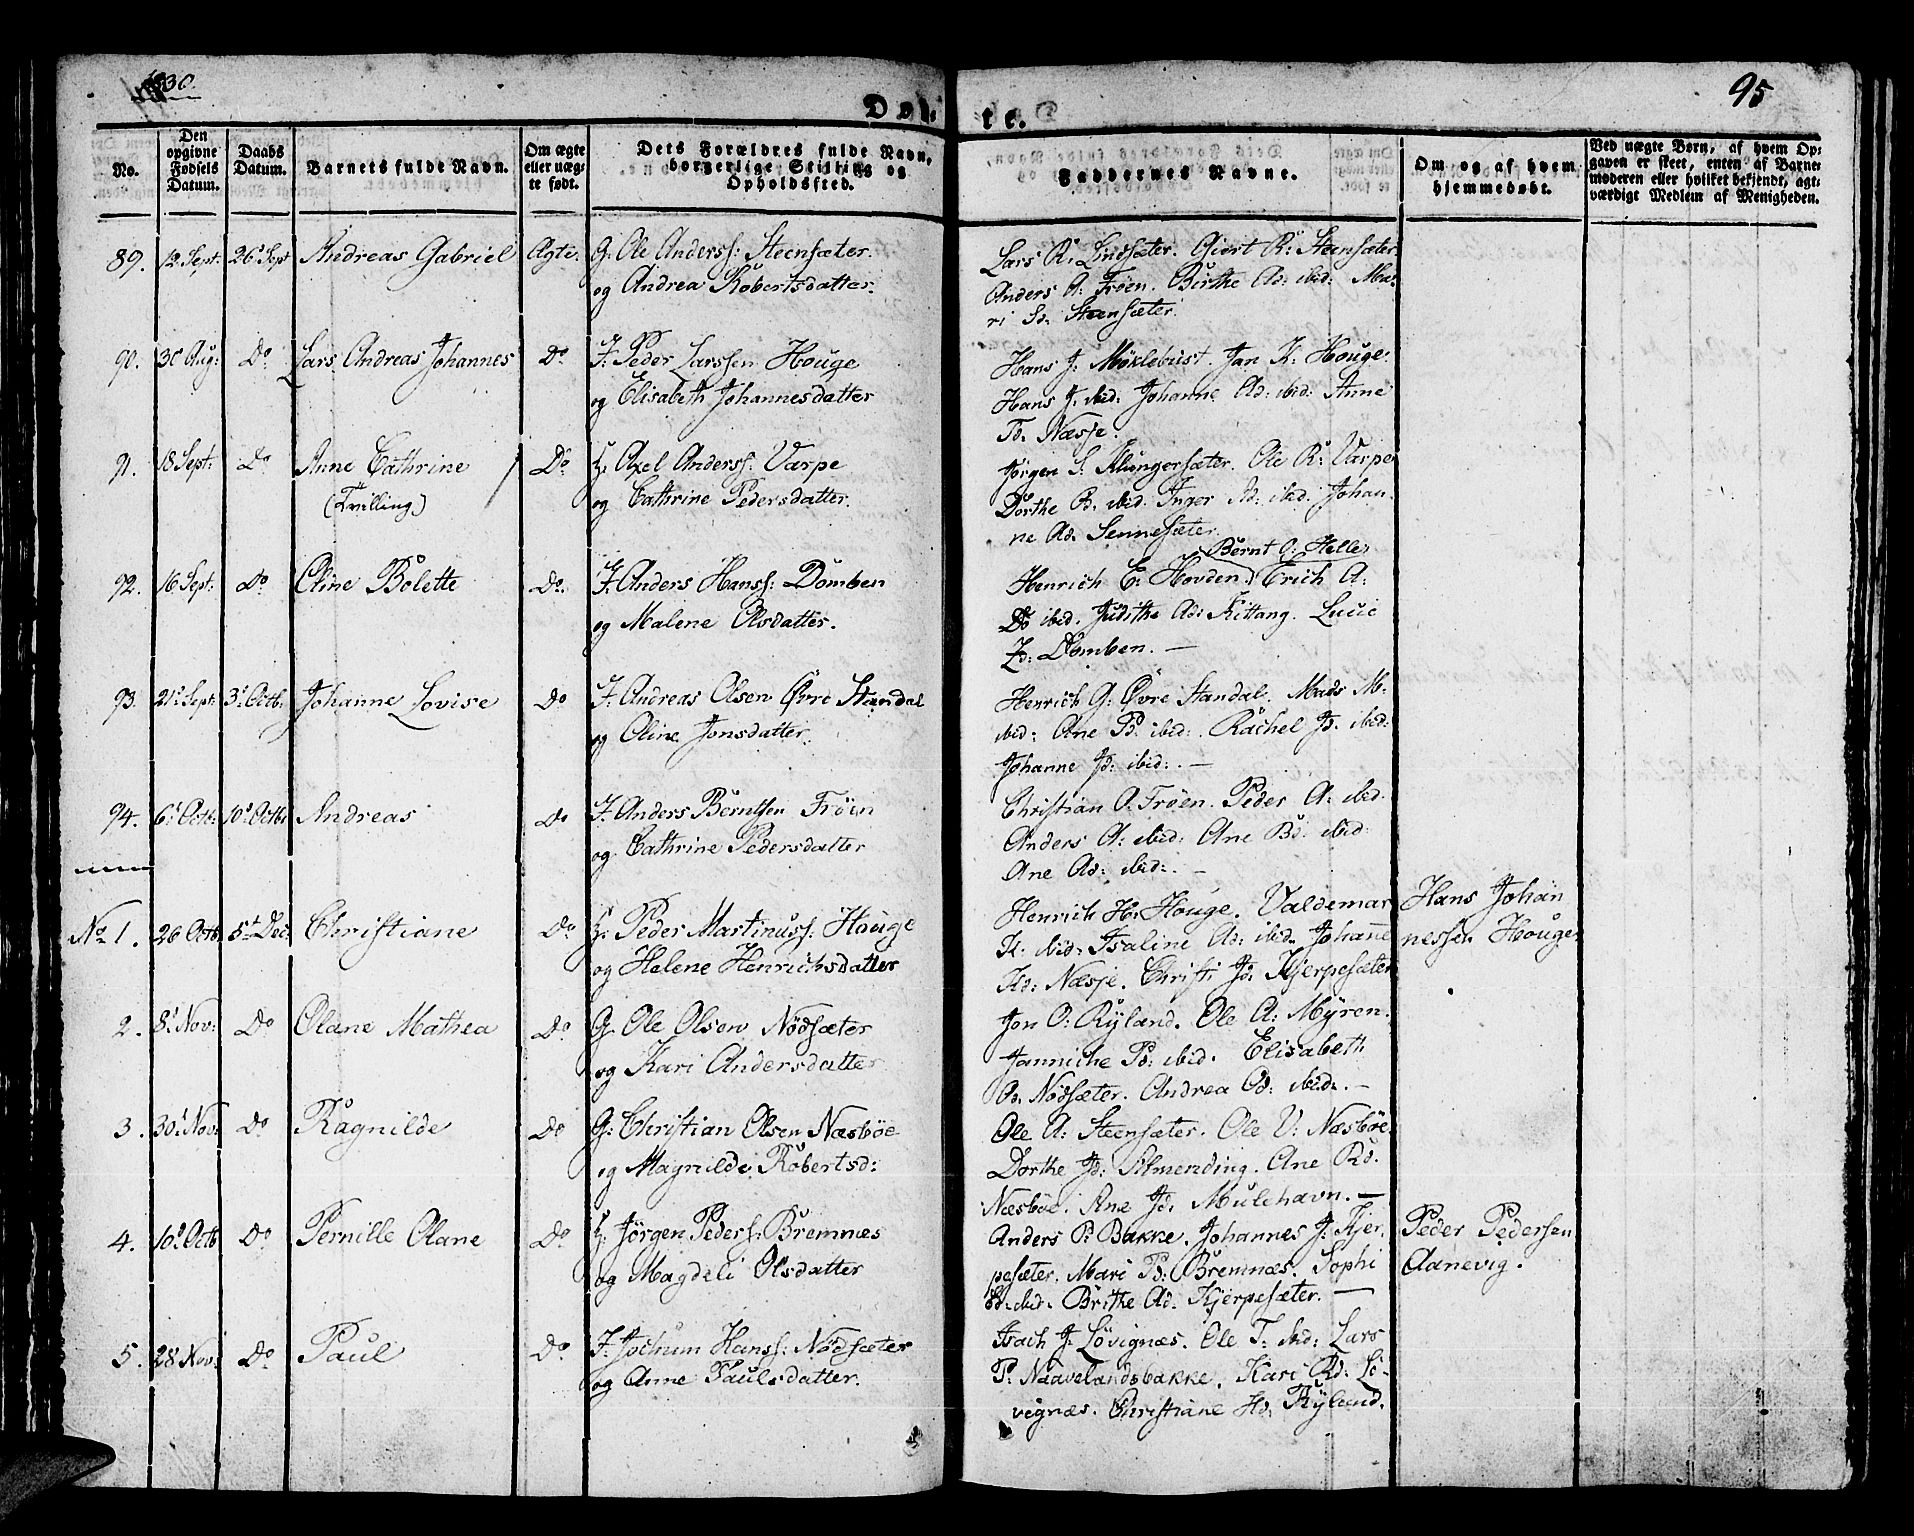 1830
95
Døb
te.
No.
Den
opgivne
Fødsels
Datum.
Daabs
Datum.
Barnets fulde Navn.
Om ægte
eller uæg-
te født.
Dets Forældres fulde Navn,
borgerlige Stilling og
Opholdsted.
Faddernes Navne.
Om og af hvem
hjemmedøbt.
Ved uægte Børn, af hvem Op-
gaven er skeet, enten af Barne-
moderen eller hvilket bekjendt, agt-
værdigt Medlem af Menigheden.
89. 12 Sept: 26 Sept Andreas Gabriel Ægte. G. Ole Anderss: Steensæter.
og Andrea Robertsdatter.
Lars R: Lindsæter. Giert R: Steensæter.
Anders A: Frøen. Birthe Ad: ibid: Ma-
ri Sd: Steensæter.
90. 30 Aug: Do Lars Andreas Johannes Do J: Peder Larssen Houge
og Elisabeth Johannesdatter
Hans J: Møklebust. Jan K: Houge.
Hans J: ibid: Johanne Ad: ibid: Anne
Td: Næsje.
91. 18 Sept: Do Anne Cathrine Do H: Axel Anderss: Varpe
(Tvilling) og Cathrine Pedersdatter.
Jørgen S: Klungersæter. Ole R: Varpe
Dorthe Pd: ibid. Inger Ad: ibid. Johan-
ne Ad. Sennesæter.
92. 16 Sept: Do Oline Bolette Do. J: Anders Hanss: Domben
og Malene Olsdatter.
Bernt O: Helle
Henrich E: Hovden. Erich A:
Do ibid. Judithe Ad: Kittang. Lucie
Zd: Domben. —
93. 21 Sept: 3 Octb: Johanne Lovise Do J: Andreas Olsen Øvre Standal
og Oline Jonsdatter.
Henrich G: Øvre Standal. Mads M:
ibid: Ane Pd: ibid: Rachel Jd: ibid:
Johanne Jd: ibid: —
94. 6 Octb: 10 Octb: Andreas Do J: Anders Berntsen Frøen
og Cathrine Pedersdatter
Christian O: Frøen. Peder A: ibid.
Anders A: ibid: Ane Bd: ibid:
Ane Ad: ibid: —
No 1. 26 Octb. 5te Dec: Christiane Do H: Peder Martinuss: Houge
og Helene Henrichsdatter
Henrich H: Houge. Valdemar
H: ibid: Isaline Ad: ibid. Johanne
Hd: Næsje. Christi Jd: Kjerpesæter
Hans Johan
nessen Houge.
2. 8 Nov: Do Olane Mathea Do G: Ole Olsen Nødsæter
og Kari Andersdatter
Jon O: Ryland. Ole A: Myren.
Janniche Pd: ibid. Elisabeth
Od. Nødsæter. Andrea Od: ibid: —
3. 30 Nov: Do Ragnilde Do G: Christian Olsen Næsbøe
og Magnilde Robertsd:
Ole A: Steensæter. Ole V: Næsbøe
Dorthe Jd: Silmending. Ane Rd.
Næsbøe. Ane Jd: Mulehavn. —
4. 10 Octb Do Pernille Olane Do H: Jørgen Peders: Bremnæs
og Magdeli Olsdatter
Anders P: Bakke. Johannes J: Kjer-
pesæter. Mari Pd: Bremnæs. Sophi
Sd: ibid. Brithe Ad. Kjerpesæter. —
Peder Pedersen
Aanevig.
5. 28 Nov: Do Paul Do J: Jochum Hanss: Nødsæter
og Anne Paulsdatter.
Isach J: Løvignæs. Ole T: ibid: Lars
P: Naavelandsbakke. Kari Rd: Lø-
vignæs. Christiane Hd: Ryland.